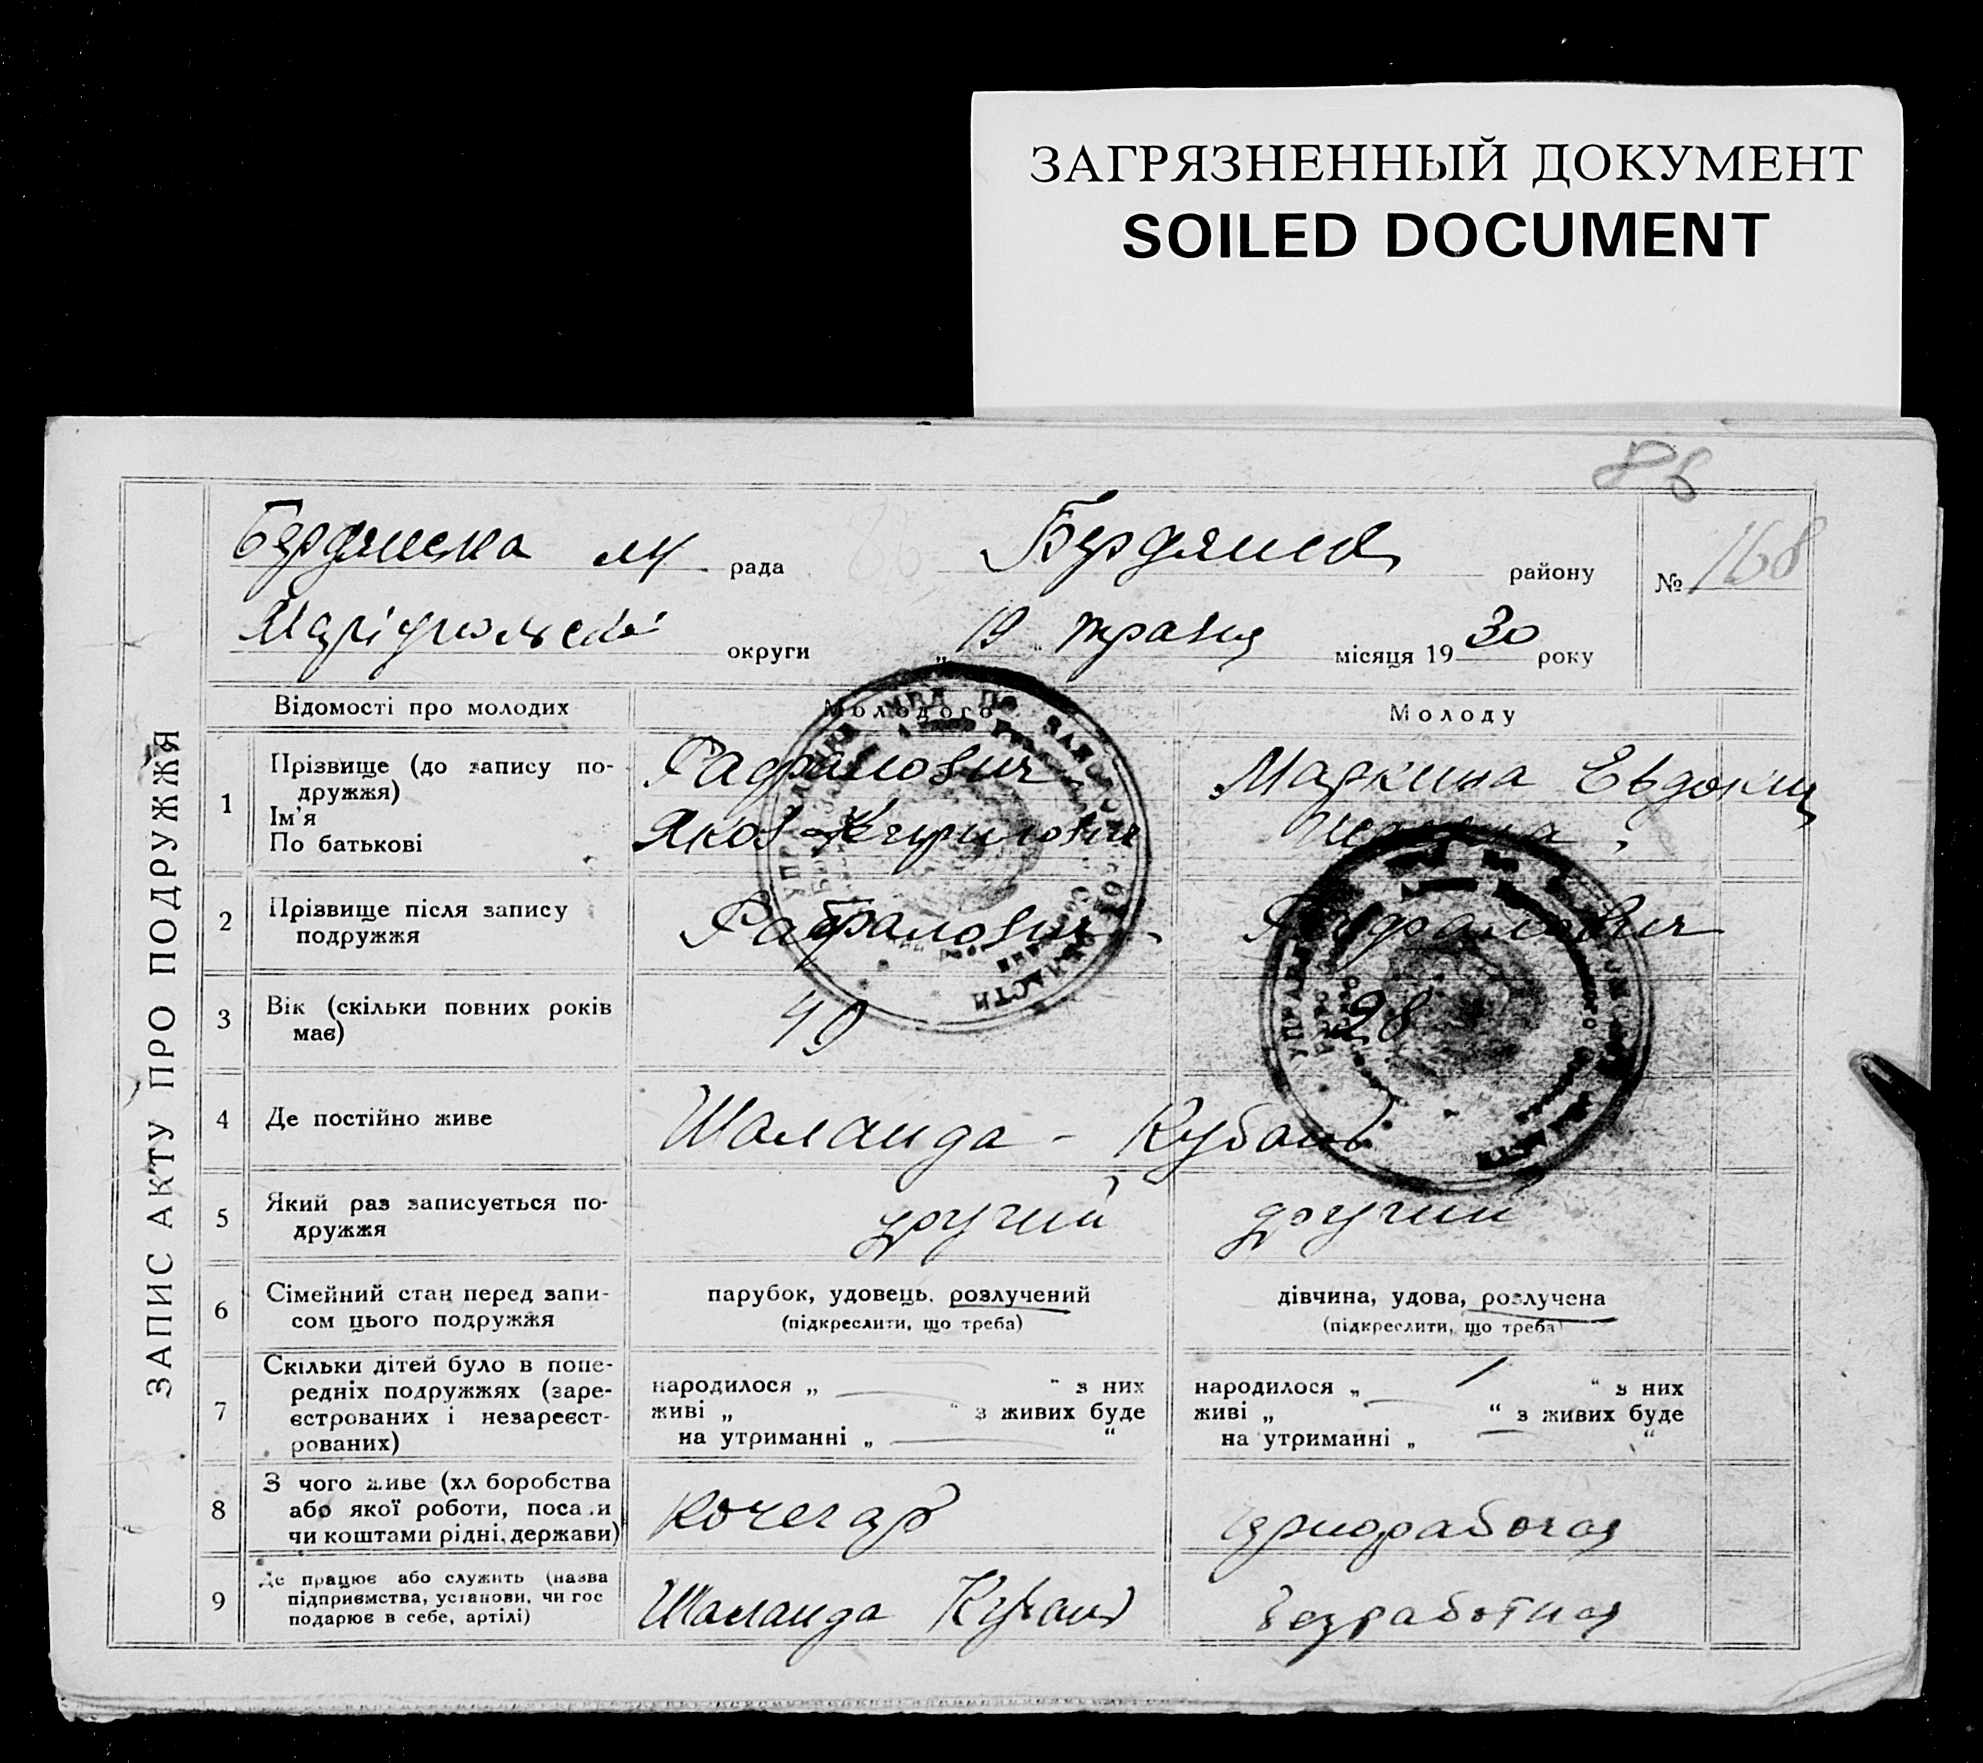 ЗАГРЯЗНЕННЫЙ ДОКУМЕНТ
SOILED DOCUMENT
86
ЗАПИС АКТУ ПРО ПОДРУЖЖЯ
Бердянська м рада Бердянськ району № 168
Маріупольської округи „19" травня місяця 1930 року
Відомості про молодих Молодого Молоду
1 Прізвище (до запису подружжя)
Ім'я
По батькові
Яков Кирилович
Маркина Евдокия
2 Прізвище після запису
подружжя
3 Вік (скільки повних років
має)
40 28
4 Де постійно живе Шаланда - Кубань
5 Який раз записується по-
дружжя
другий другий
6 Сімейний стан перед запи-
сом цього подружжя
парубок, удовець, розлучений
(підкреслити, що треба)
дівчина, удова, розлучена
(підкреслити, що треба)
7 Скільки дітей було в попе-
редніх подружжях (заре-
єстрованих і незареєст-
рованих)
народилося „ — " з них
живі „ " з живих буде
на утриманні „ — "
народилося „ 1 " з них
живі „ " з живих буде
на утриманні „ — "
8 З чого живе (хліборобства
або якої роботи, посади
чи коштами рідні, держави)
кочегар чорнорабочая
9 Де працює або служить (назва
підприємства, установи, чи гос
подарює в себе, артілі)
Шаланда Кубань безработная